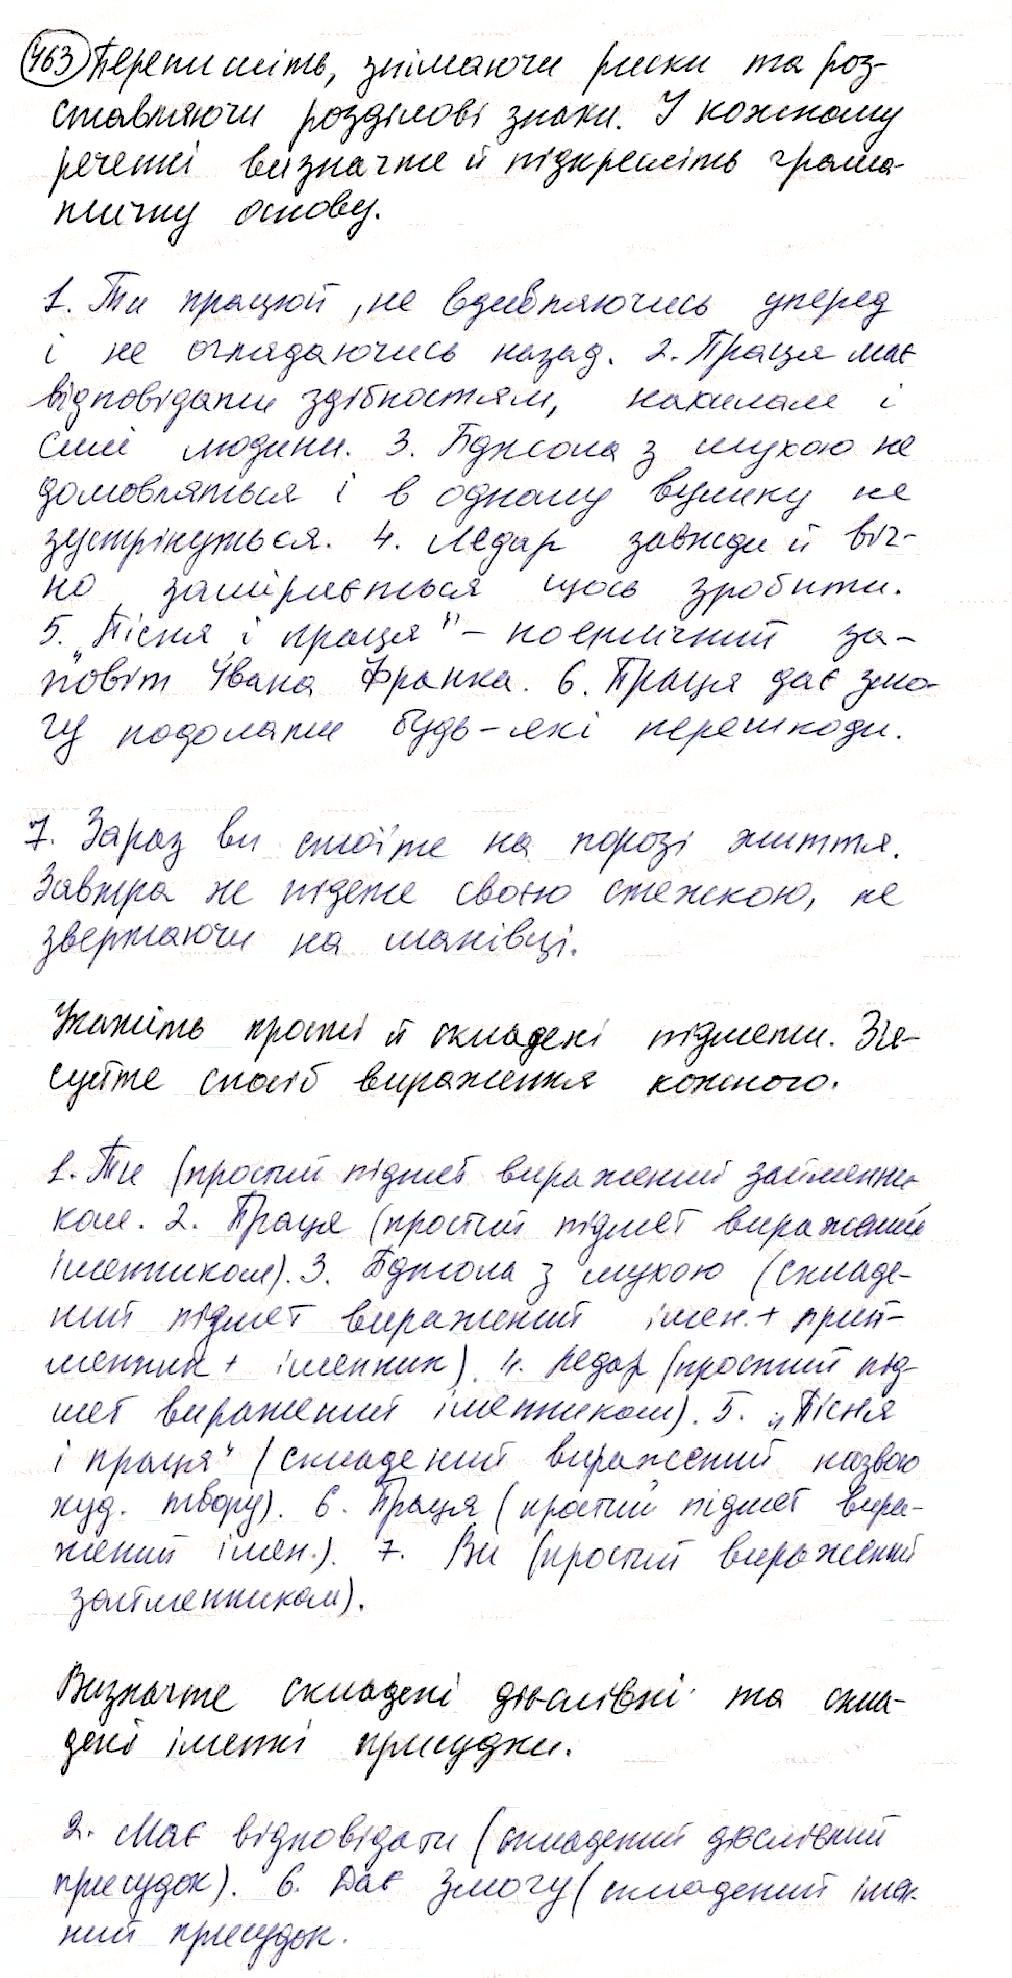 463 Перепишіть, знімаючи риски та роз-
ставляючи розділові знаки. У кожному
реченні визначте й підкресліть грама-
тичну основу.
1. Ти працюй, не вдивляючись уперед
і не оглядаючись назад. 2. Праця має
відповідати здібностям, нахилам і
силі людини. 3. Бджола з мухою не
домовляться і в одному вулику не
зустрінуться. 4. Ледар завжди й віч-
но заміряється щось зробити.
5. „Пісня і праця" – поетичний за-
повіт Івана Франка. 6. Праця дає змо-
гу подолати будь-які перешкоди.
7. Зараз ви стоїте на порозі життя.
Завтра же підете своєю стежкою, не
звертаючи на манівці.
Укажіть прості й складені підмети. З'я-
суйте спосіб вираження кожного.
1. Ти (простий підмет виражений займенни-
ком. 2. Праця (простий підмет виражений
іменником). 3. Бджола з мухою (складе-
ний підмет виражений імен. + прий-
менник + іменник). 4. Ледар (простий під-
мет виражений іменником). 5. „Пісня
і праця" (складений виражений назвою
худ. твору). 6. Праця (простий підмет вира-
жений імен.). 7. Ви (простий виражений
займенником).
Визначте складені дієслівні та скла-
дені іменні присудки.
2. Має відповідати (складений дієслівний
присудок). 6. Дає змогу (складений імен-
ний присудок.